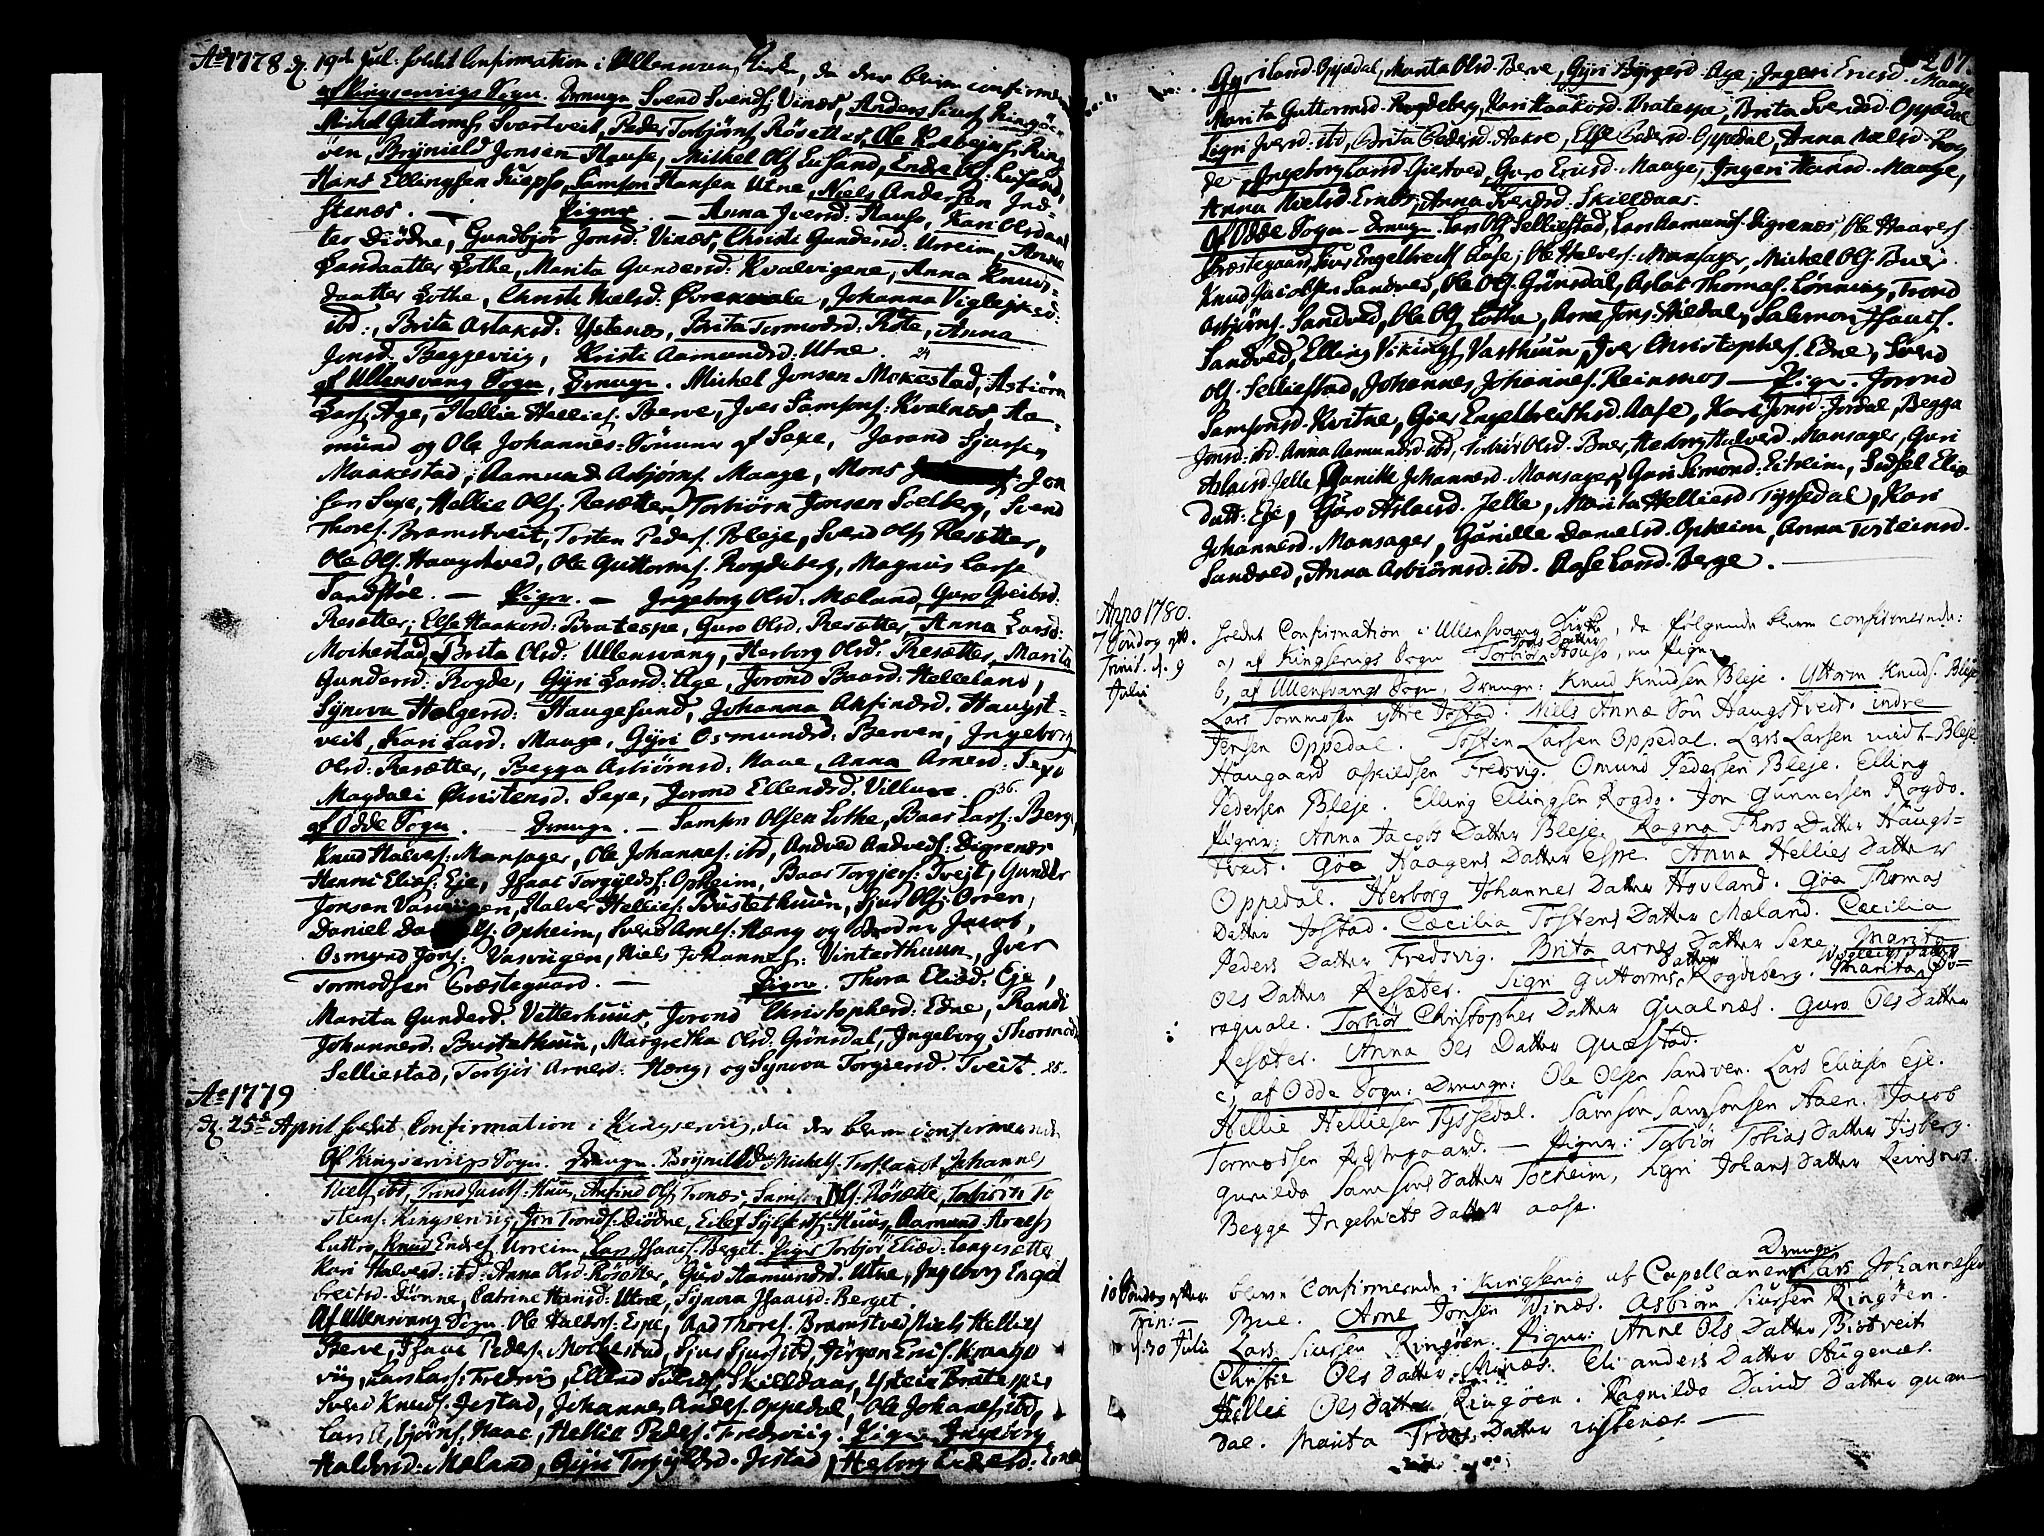 Ao 1778 d. 19de Jul: holdt Confirmation i Ullensvang Kirke, da der bleve confirmerede
af Kingservigs Sogn. Drenge Svend Svends. Vinæs, Anders Siurs. Ringöen
Michel Guttorms. Svartveit, Peder Torbjörns. Rösetter, Ole Kolbejns. Ring
öen, Brÿnield Jonsen Hause, Michel Ols. Eusand, Endre Ols. Eusand,
Hans Ellingsen Kiepso, Samson Hansen Utne, Niels Andersen Ind-
stenæs. — Piger — Anna Iversd: Hauso, Kari Olsdaat
ter Diödne, Gundbjör Jonsd: Vinæs, Christi Gundersd: Urreim, Anna
daatter Lothe, Marita Gundersd: Kvalvigene, Anna Knuds-
daatter Lothe, Christi Nielsd: Övrekvale, Johanna Viglejksd:
ibd:, Brita Aslaksd: Ystenæs, Brita Tormodsd: Rôte, Anna
Jonsd: Beggeviig, Kristi Aamundsd: Utne. 24
af Ullensvang Sogn, Drenge. Michel Jonsen Mokestad, Asbiörn
Lars. Age, Hellie Hellies: Berve, Iver Samsons: Kvalnæs Aa-
mund og Ole Johannes-Sönner af Sexe, Jorand Sjursen
Maakestad, Aamund Asbjörns. Maage, Mons Jon
sen Sexe, Hellie Ols: Resætter, Torbiörn Jonsen Solberg, Svend
Thores. Bramstveit, Tosten Peders. Bleje, Svend Ols. Resætter,
Ole Ols. Haugstved, Ole Guttorms. Rogdeberg, Magnus Larse
Sandstöe. — Piger. — Ingeborg Olsd: Mæland, Guro Greibsd:
Resætter, Else Haakonsd: Bratespe, Guro Olsd. Resætter, Anna Larsd:
Mockestad, Brita Olsd: Ullensvang, Herborg Olsd: Resætter, Marita
Gundersd: Rogde, Gÿri Larsd: Age, Jorond Baarsd: Helleland,
Synova Helgersd: Haugesund, Johanna Anfindsd. Haugst-
veit, Kari Larsd: Maage, Gÿri Osmundsd: Berven, Ingeborg
Olsd: Resætter, Begga Asbiörnsd: Naae, Anna Arnesd: Sexe
Magdali Christensd. Sexe, Jorond Ellendsd. Villure. 36.
af Odde Sogn. — Drenge. — Samson Olsen Lothe, Baar Lars: Berge,
Knud Halvors: Mansager, Ole Johannes: ibd, Andved Andveds: Digrenæs
Henric Elias: Eje, Isaac Torgÿlds: Opheim, Baar Torgiers: Tveit, Gunder
Jonsen Vasviigen, Halvor Hellies: Bustethuun, Sjur Ols: Orren,
Daniel Opheim, Svend Arnes: Hæng og Broder Jacob,
Osmund Jons: Vasviigen, Niels Johannes: Vinterthuun, Iver
Tormodsen Præstegaard. — Piger. Thora Eliæd: Eje,
Marita Gundersd. Vetterhuus, Jorond Christophersd: Edne, Randi
Johannesd: Bustethuun, Margretha Olsd: Grönsdal, Ingeborg Thormods
Selliestad, Torbjör Arnesd: Hæng, og Synova Torgiersd. Tveit. 25.
Ao 1779
d. 25de April holdt Confirmation i Kingservig, da der bleve confirmerede
Af Kingservigs Sogn. Drenge. Brynild Michels: Johannes
Niels. ibd, Trond Jacobs: Huus, Anfind Ols. Tronæs, Samson Ols. Rösætter, Torbiörn To
stens: Kingservig, Jon Tronds. Diödne, Eilef Sÿlfests: Huus, Aamund Arnes
Luttro, Knud Endres. Urreim, Lars Isaacs. Berget. Piger Torbjör Eliæd. Langesætter
Kari Halvorsd: ibd. Anna Olsd. Rösetter, Guro Aamundsd. Utne, Ingeborg Engel
breitsd. Dionne, Catrine Hansd: Utne, Synova Isaacsd: Berget.
Af Ullensvang Sogn. Ole Haldors. Espe, Aad Thores. Bramstved, Niels Hellies
Berve, Isaac Peders. Mockestad, Sjur Sjurs. ibd, Jörgen Erics. Kraage
viig, Lars Lars: Fredsviig, Ellend Skielldaas, Bratespe,
Svend Knuds. Jestad, Johannes Anders. Oppedal, Ole Johannes. ibd,
Lars Asbjörns. Naae, Hellie Peders. Fredsviig. Piger Ingeborg
Haldorsd: Mæland, Gÿri Torgÿldsd. Jestad, Herborg

207.
Gyri Larsd. Oppedal, Marita Olsd. Berve, Gÿri Börgesd. Age, Ingeri Ericsd. Maage
Marita Guttormsd. Rogdeberg, Kari Haakonsd. Bratespe, Brita Svendsd. Oppedal
Sigri Iversd. ibd, Brita Pedersd. Aakre, Else Pedersd. Oppedal, Anna Nielsd. Rog
de, Ingeborg Larsd. Gietved, Guro Ericsd. Maage, Ingeri Hansd. Maage,
Anna Nielsd. Ernæs, Anna Svendsd. Skielldaas.
Af Odde Sogn — Drenge. Lars Ols. Selliestad, Lars Aamunds. Digrenæs, Ole Haavors
Præstegaard, Iver Engelbrechts. Aase, Ole Halvors: Mansager, Michel Ols. Buer.
Knud Jacobsen Sandved, Ole Ols. Grönsdal, Aslac Thomas. Lönning, Trond
Asbjörns. Sandved, Ole Ols. Lothe, Arne Jons. Hildal, Salomon Isaacs.
Sandved, Elling Vikings. Vasthuun, Iver Christophers. Edne, Svend
Ols. Selliestad, Johannes Johannes. Reinsnos — Piger. Jorond
Samsonsd. Kvitne, Giær Engelbreithsd. Aase, Kari Jonsd. Jordal, Begga
Jonsd. ibd. Anna Aamundsd. ibd, Torbiör Olsd. Buer, Herborg Halvorsd. Mansager, Guri
Aslacsd. Jelle, Gunille Johannesd. Mansager, Guri Simonsd: Eitreim, Sidsel Eliæ
datt: Eje, Guro Aslacsd. Jelle, Marita Helliesd Tyssedal, Kari
Johannesd. Mansager, Gunille Danielsd. Opheim, Anna Torsteinsd.
Sandved, Anna Asbiörnsd. ibd. Aase Larsd. Berge. —
Anno 1780.
7 Söndag eft. Trinit. d. 9 Julii
holdet Confirmation i Ullensvang Kirke, da fölgende bleve confirmerede:
a) af Kingservigs Sogn Torbiör Datter Hauso, en Pige
b, af Ullensvangs Sogn, Drenge: Knud Knudsen Bleje. Uttorm Knuds. Bleje
Lars Tommasen yttre Jostad. Niels Annæ Sön Haugstveit. indre
Jersen Oppedal. Tosten Larsen Oppedal. Lars Larsen Bleje
Haagaard Askildsen Fredsvig. Omund Pedersen Bleje. Elling
Pedersen Bleje. Elling Ellingsen Rogdo. Jon Gunnersen Rogdo.
Piger: Anna Jacobs Datter Bleje. Ragna Thors Datter Haugs-
tveit. Göa Haagens Datter Espe. Anna Hellies Datter
Oppedal. Herborg Johannes Datter Hovland. Göa Thomas
Datter Jostad. Cæcilia Tostens Datter Mæland. Cæcilia
Peders Datter Fredsvig. Brita Arnes Datter Sexe. Marita
Ols Datter Resæter. Sigri Guttorms Datter Rogdeberg. Marita Ov-
reguale. Torbiör Christophers Datter Qualnæs. Guro Ols Datter
Resæter. Anna Ols Datter Quæstad.
c, af Odde Sogn: Drenge: Ole Olsen Sandven. Lars Eliasen Eje.
Hellie Helliesen Tyssedal. Samson Samsonsen Aaen. Jacob
Tormodsen Præstegaard. — Piger: Torbiör Tobias Datter Isberg.
Gunilde Samsons Datter Tocheim, Sigri Johans Datter Reinsnos.
Begge Ingebricts Datter Aase.
10 Söndag efter Trin: — d. 30 Julii
bleve confirmerede i Kingservig af Capellanen Drenge: Lars Johannesen
Bue. Arne Jonsen Winæs. Asbiörn Siursen Ringöen.
Lars Siursen Ringöen. Piger: Anne Ols Datter Biotveit
Christie Ols Datter Winæs. Eli Anders Datter Augenæs.
Hillie Ols Datter Ringöen. Ragnilde Davids Datter Quan-
dal. Marita Trons Datter ustenæs. —